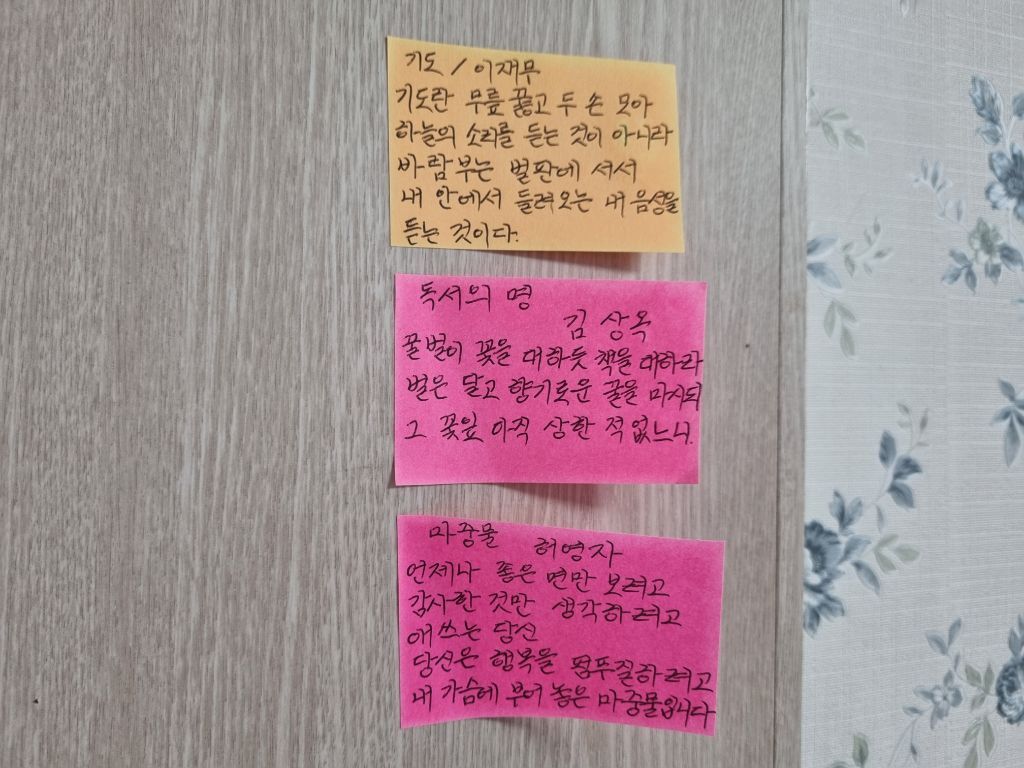 기도 / 이재무
기도란 무릎 꿇고 두 손 모아
하늘의 소리를 듣는 것이 아니라
바람 부는 벌판에 서서
내 안에서 들려오는 내 음성을
듣는 것이다.
독서의 명
김 상옥
꿀벌이 꽃을 대하듯 책을 대하라
벌은 달고 향기로운 꿀을 마시되
그 꽃잎 아직 상한 적 없느니.
마중물 허영자
언제나 좋은 면만 보려고
감사한 것만 생각하려고
애쓰는 당신
당신은 행복을 펌푸질하려고
내 가슴에 부어 놓은 마중물입니다